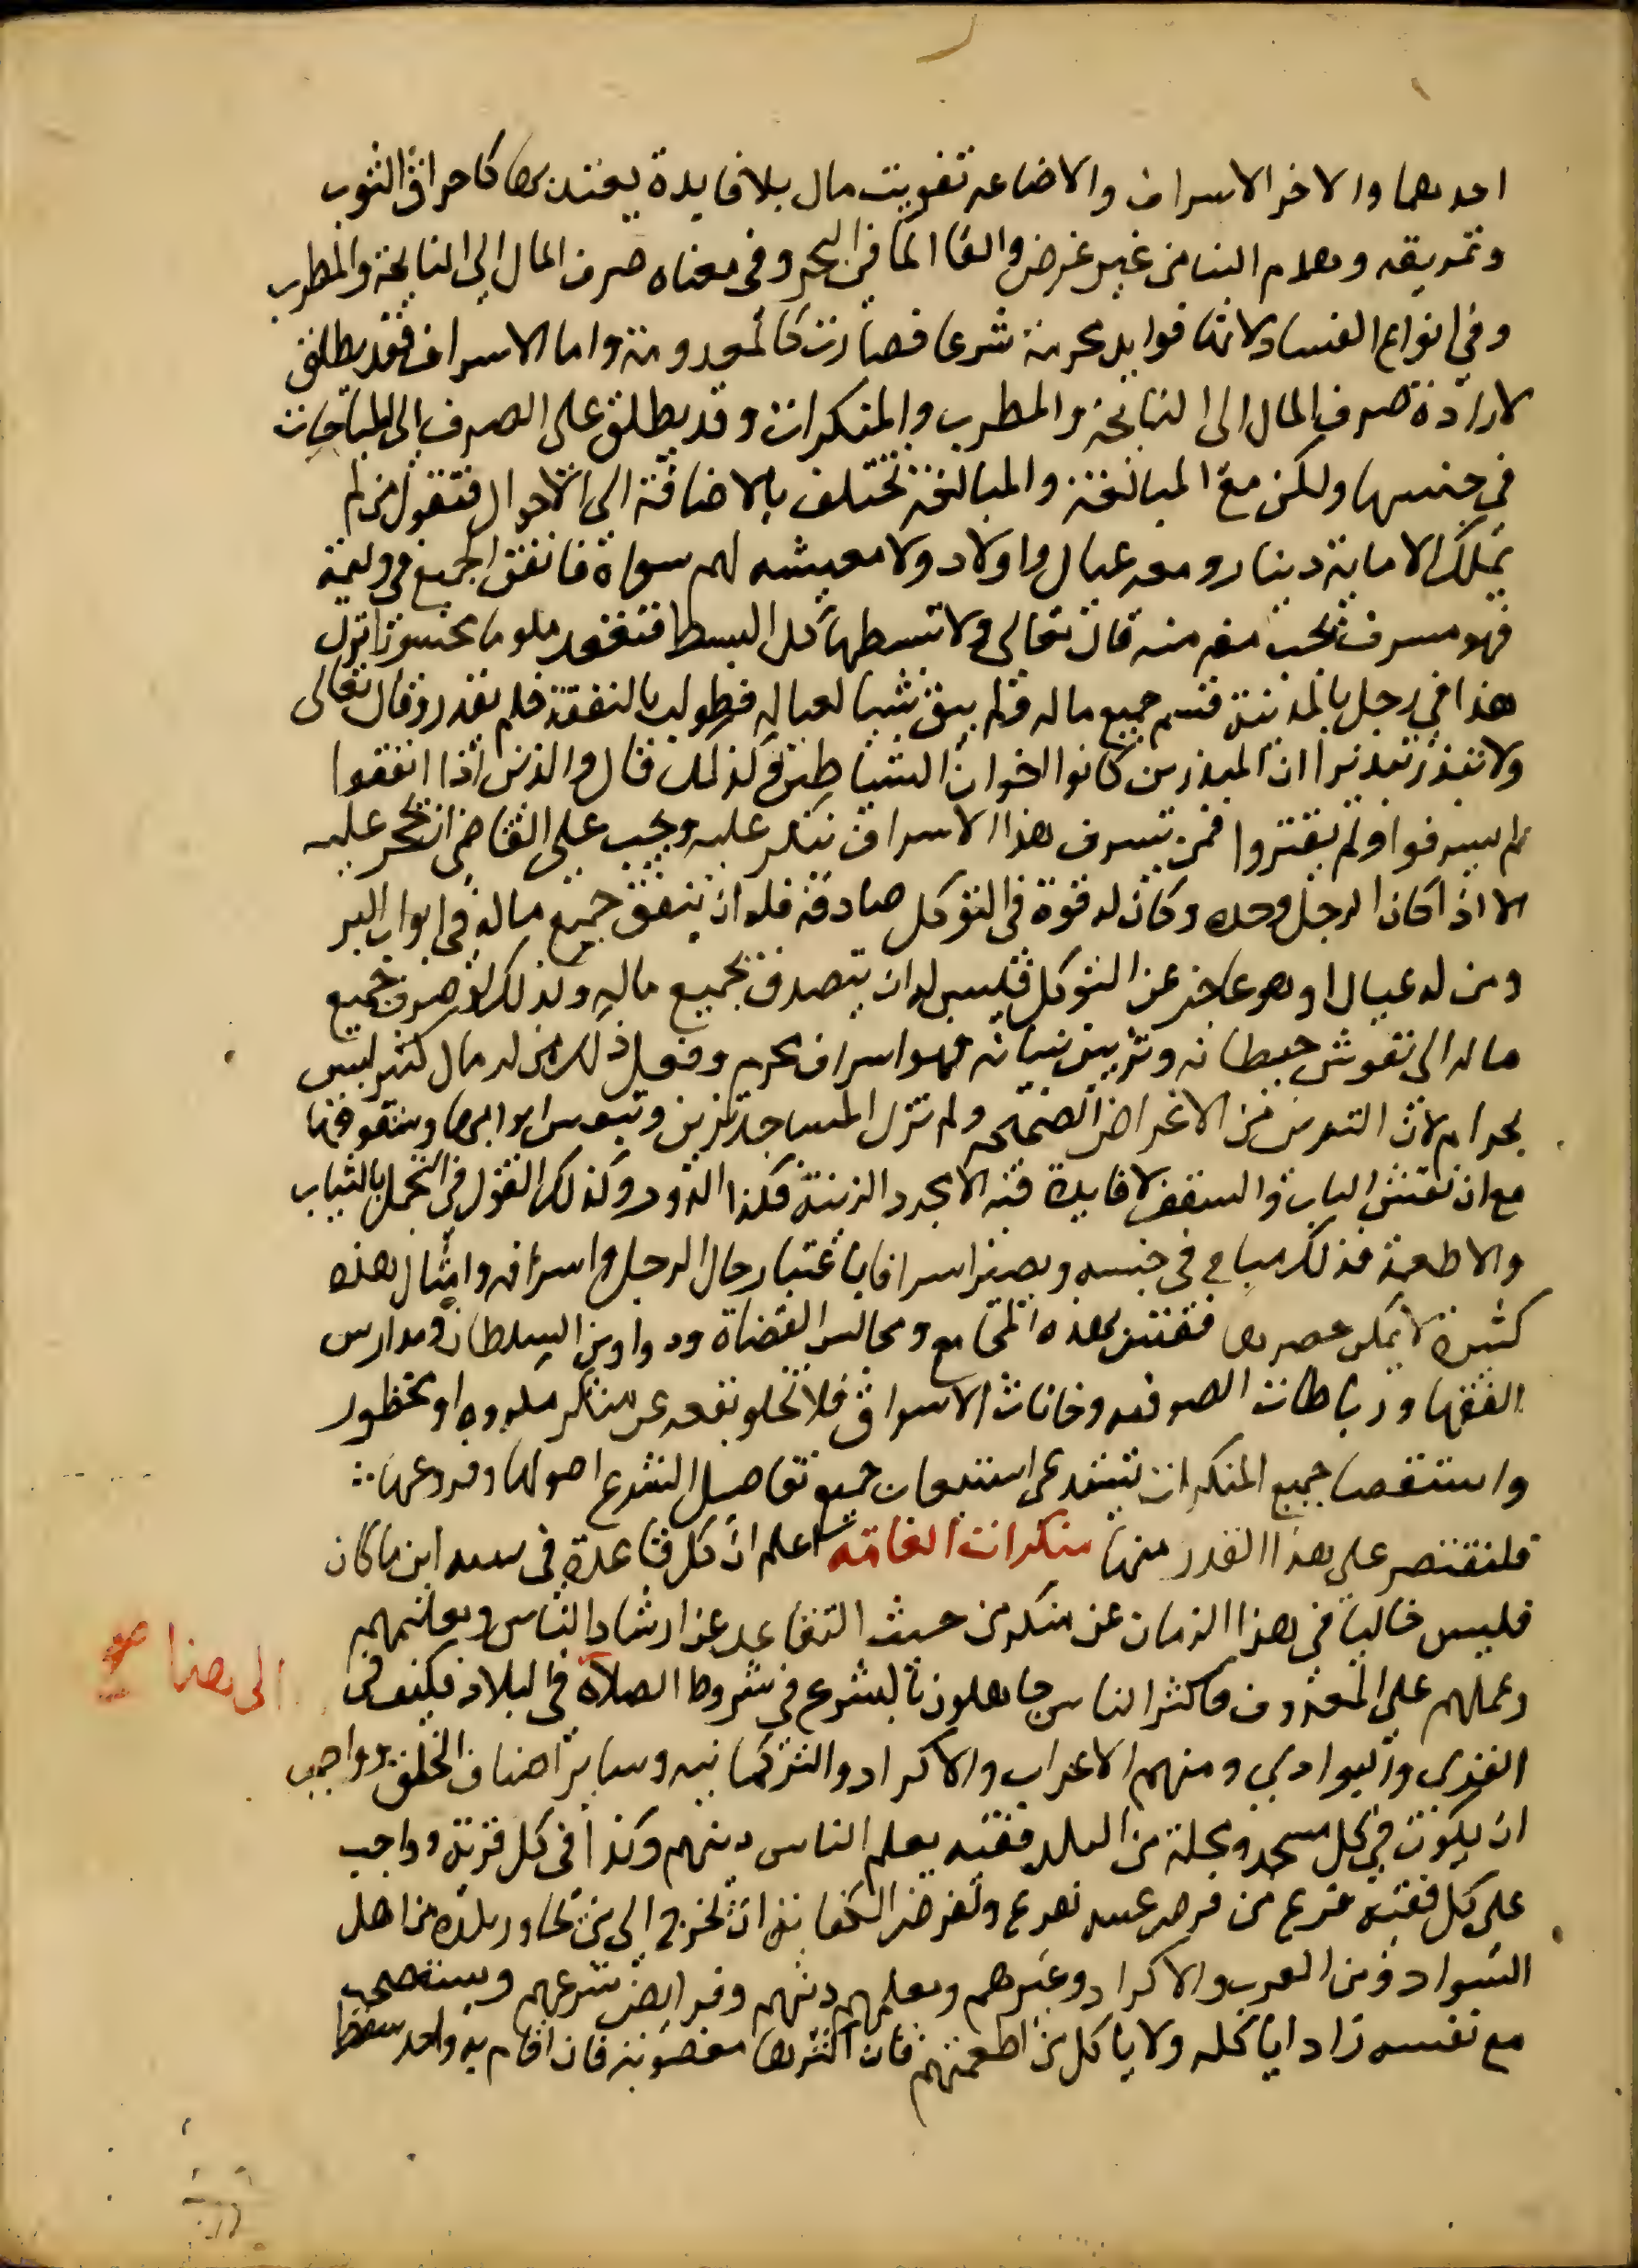 احدهما والاخر الاسراف والاضاعه تفويت مال بلا فايدة يعتد بها كاحراق الثوب
وتمزيقه وهدم البنا من غير غرض والقا المال في البحر وفي معناه صرف المال الى النايحة والمطرب
وفي انواع الفساد لانها فوايد محرمة شرعا فصارت كالمعدومة واما الاسراف فقد يطلق
لارادة صرف المال الى النايحة والمطرب والمنكرات وقد يطلق على الصرف الى المباحات
في جنسها ولكن مع المبالغة والمبالغة تختلف بالاضافة الى الاحوال فتقول من لم
يملك الا ماية دينار ومعه عيال واولاد ولا معيشه لهم سواه فانفق الجميع في وليمة
فهو مسرف يجب منعه منه قال تعالى ولا تبسطها كل البسط فتقعد ملوما محسورا نزل
هذا في رجل بالمدينة قسم جميع ماله ولم يبق شيا لعياله فطولب بالنفقة فلم يقدر وقال تعالى
ولا تبذر تبذيرا ان المبذرين كانوا اخوان الشياطين وكذلك قال والذين اذا انفقوا
لم يسرفوا ولم يقتروا فمن يسرف هذا الاسراف ينكر عليه ويجب على القاضي ان يحجر عليه
الا اذا كان الرجل وحده وكان له قوة في التوكل صادقة فله ان ينفق جميع ماله في ابواب البر
ومن له عيال او هو عاجز عن التوكل فليس له ان يتصدق بجميع ماله وكذلك لو صرف جميع
ماله الى نقوش حيطانه وتزيين بنيانه فهو اسراف محرم وفعل ذلك ممن له مال كثير ليس
بحرام لان التزيين من الاغراض الصحيحه ولم تزل المساجد تزين وتنقش ابوابها وسقوفها
مع ان نقش الباب والسقف لا فايدة فيه الا مجرد الزينة فكذا الدور وكذلك القول في التجمل بالثياب
والاطعمة فذلك مباح في جنسه ويصير اسرافا باعتبار حال الرجل واسرافه وامثال هذه
كثيرة لا يمكن حصرها فقس بهذه المجامع ومجالس القضاة ودواوين السلطان ومدارس
الفقها ورباطات الصوفيه وخانات الاسواق فلا تخلو بقعه عن منكر مكروه او محظور
واستقصا جميع المنكرات يستدعي استيعاب جميع تفاصيل الشرع اصولها وفروعها
فلنقتصر على هذا القدر منها منكرات العامه اعلم ان كل قاعدة في بيته اين ما كان
فليس خاليا في هذا الزمان عن منكر من حيث التقاعد عن ارشاد الناس وتعليمهم
وحملهم على المعروف فاكثر الناس جاهلون بالشرع في شروط الصلاة في البلاد فكيف في
الى هنا صح
القرى والبوادي ومنهم الاعراب والاكراد والتركمانيه وساير اصناف الخلق وواجب
ان يكون في كل مسجد ومحلة من البلد فقيه يعلم الناس دينهم وكذا في كل قرية وواجب
على كل فقيه فرغ من فرض عينه وتفرغ لفرض الكفاية ان يخرج الى من يجاور بلده من اهل
السواد ومن العرب والاكراد وغيرهم ويعلمهم دينهم وفرايض شرعهم ويستصحب
مع نفسه زادا ياكله ولا ياكل من اطعمتهم فان اكثرها مغصوبة فان اقام به واحد سقط